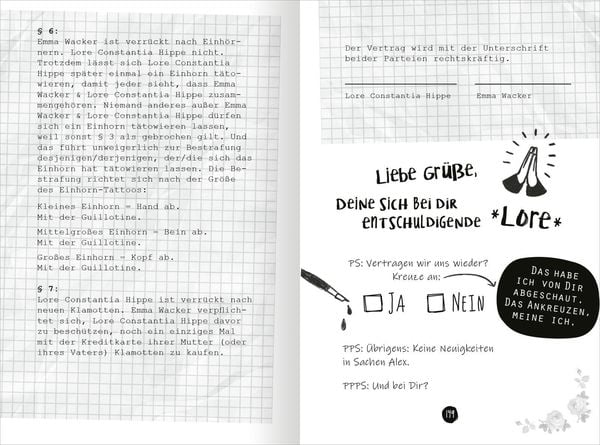 § 6:
Emma Wacker ist verrückt nach Einhör-
nern. Lore Constantia Hippe nicht.
Trotzdem lässt sich Lore Constantia
Hippe später einmal ein Einhorn täto-
wieren, damit jeder sieht, dass Emma
Wacker & Lore Constantia Hippe zusam-
mengehören. Niemand anderes außer Emma
Wacker & Lore Constantia Hippe dürfen
sich ein Einhorn tätowieren lassen,
weil sonst § 3 als gebrochen gilt. Und
das führt unweigerlich zur Bestrafung
desjenigen/derjenigen, der/die sich das
Einhorn hat tätowieren lassen. Die Be-
strafung richtet sich nach der Größe
des Einhorn-Tattoos:
Kleines Einhorn = Hand ab.
Mit der Guillotine.
Mittelgroßes Einhorn = Bein ab.
Mit der Guillotine.
Großes Einhorn = Kopf ab.
Mit der Guillotine.
§ 7:
Lore Constantia Hippe ist verrückt nach
neuen Klamotten. Emma Wacker verpflich-
tet sich, Lore Constantia Hippe davor
zu beschützen, noch ein einziges Mal
mit der Kreditkarte ihrer Mutter (oder
ihres Vaters) Klamotten zu kaufen.
Der Vertrag wird mit der Unterschrift
beider Parteien rechtskräftig.
Lore Constantia Hippe Emma Wacker
Liebe Grüße,
Deine sich bei dir
entschuldigende *Lore*
PS: Vertragen wir uns wieder?
Kreuze an:
Ja Nein
Das habe
ich von dir
abgeschaut.
Das Ankreuzen,
meine ich.
PPS: Übrigens: Keine Neuigkeiten
in Sachen Alex.
PPPS: Und bei Dir?
149